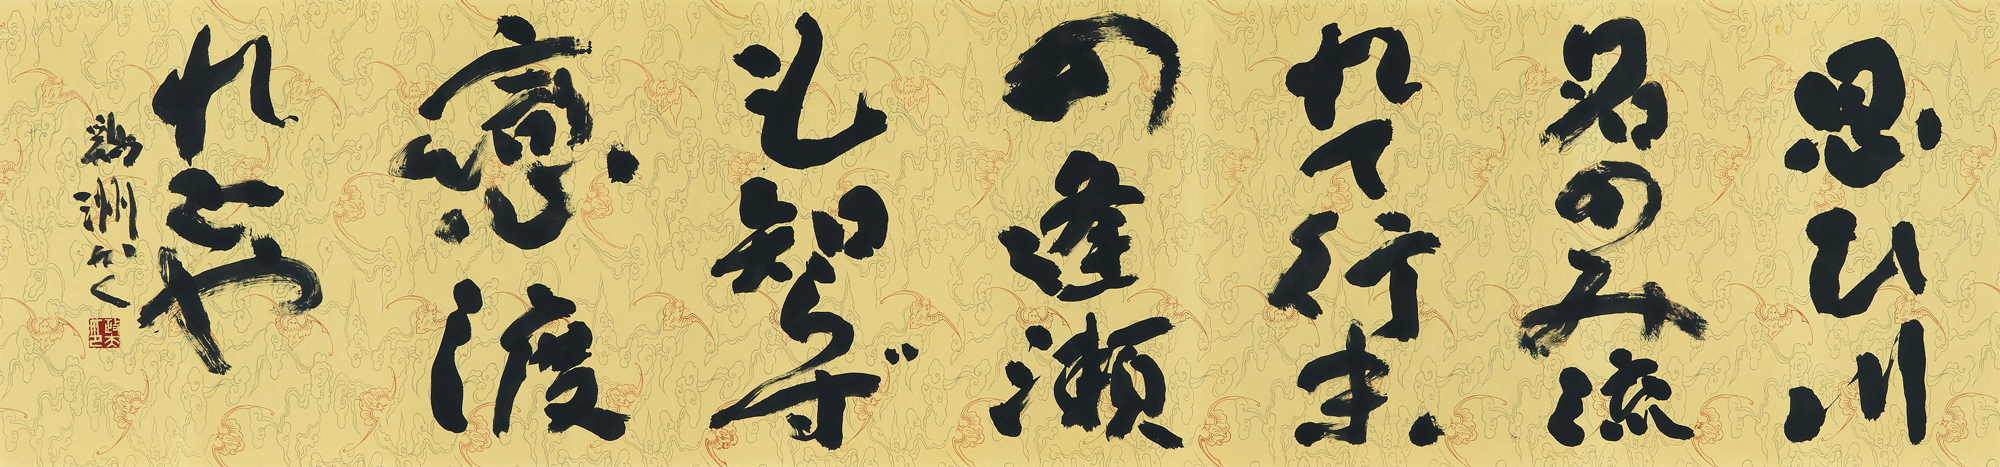 思ひ川
名のみ流
れて行末
の逢瀬
も知らず
恋渡
れとや
洲かく